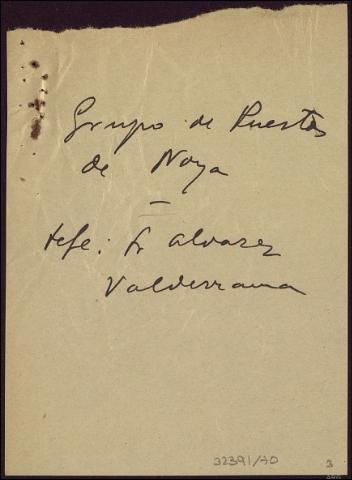 Grupo de Puertos
de Noya
—
Jefe: Sr Alvarez
Valderrama
32391/70
3